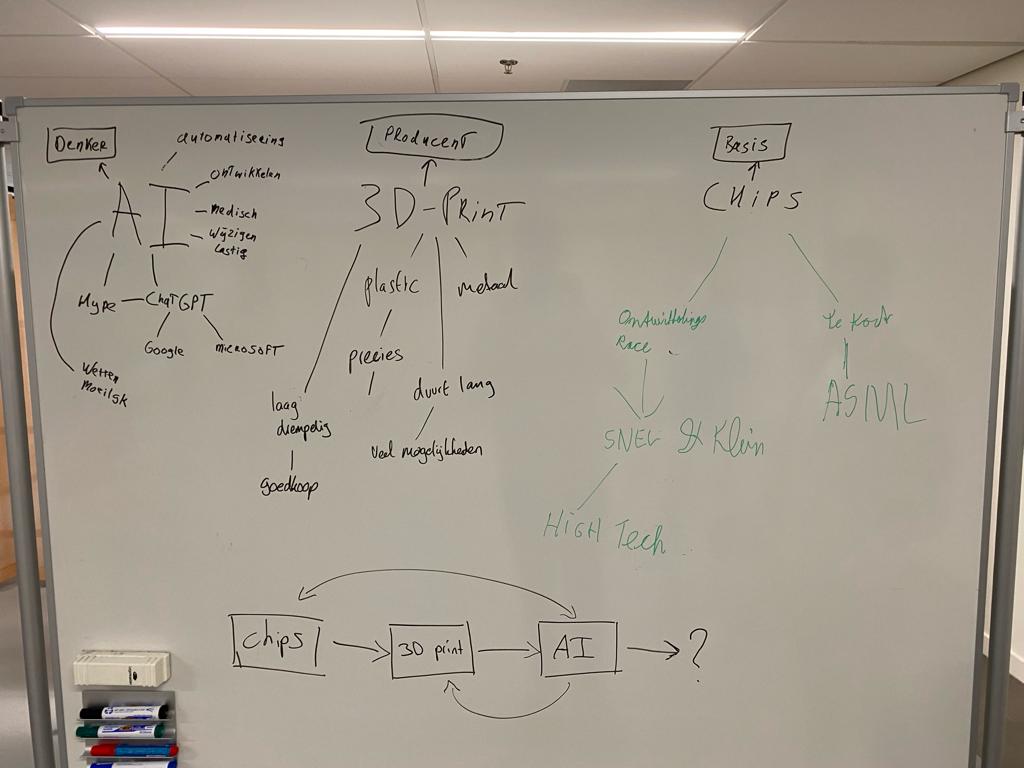 Denker
automatisering
ontwikkelen
AI
medisch
Wijzigen
Lastig
Hype
ChatGPT
Google
microsoft
Wetten
Moeilijk
Producent
3D-Print
plastic
metaal
precies
duurt lang
laag
drempelig
veel mogelijkheden
goedkoop
Basis
CHIPS
Ontwikkelings
Race
te kort
ASML
SNEL & Klein
HIGH Tech
chips
3D print
AI
?